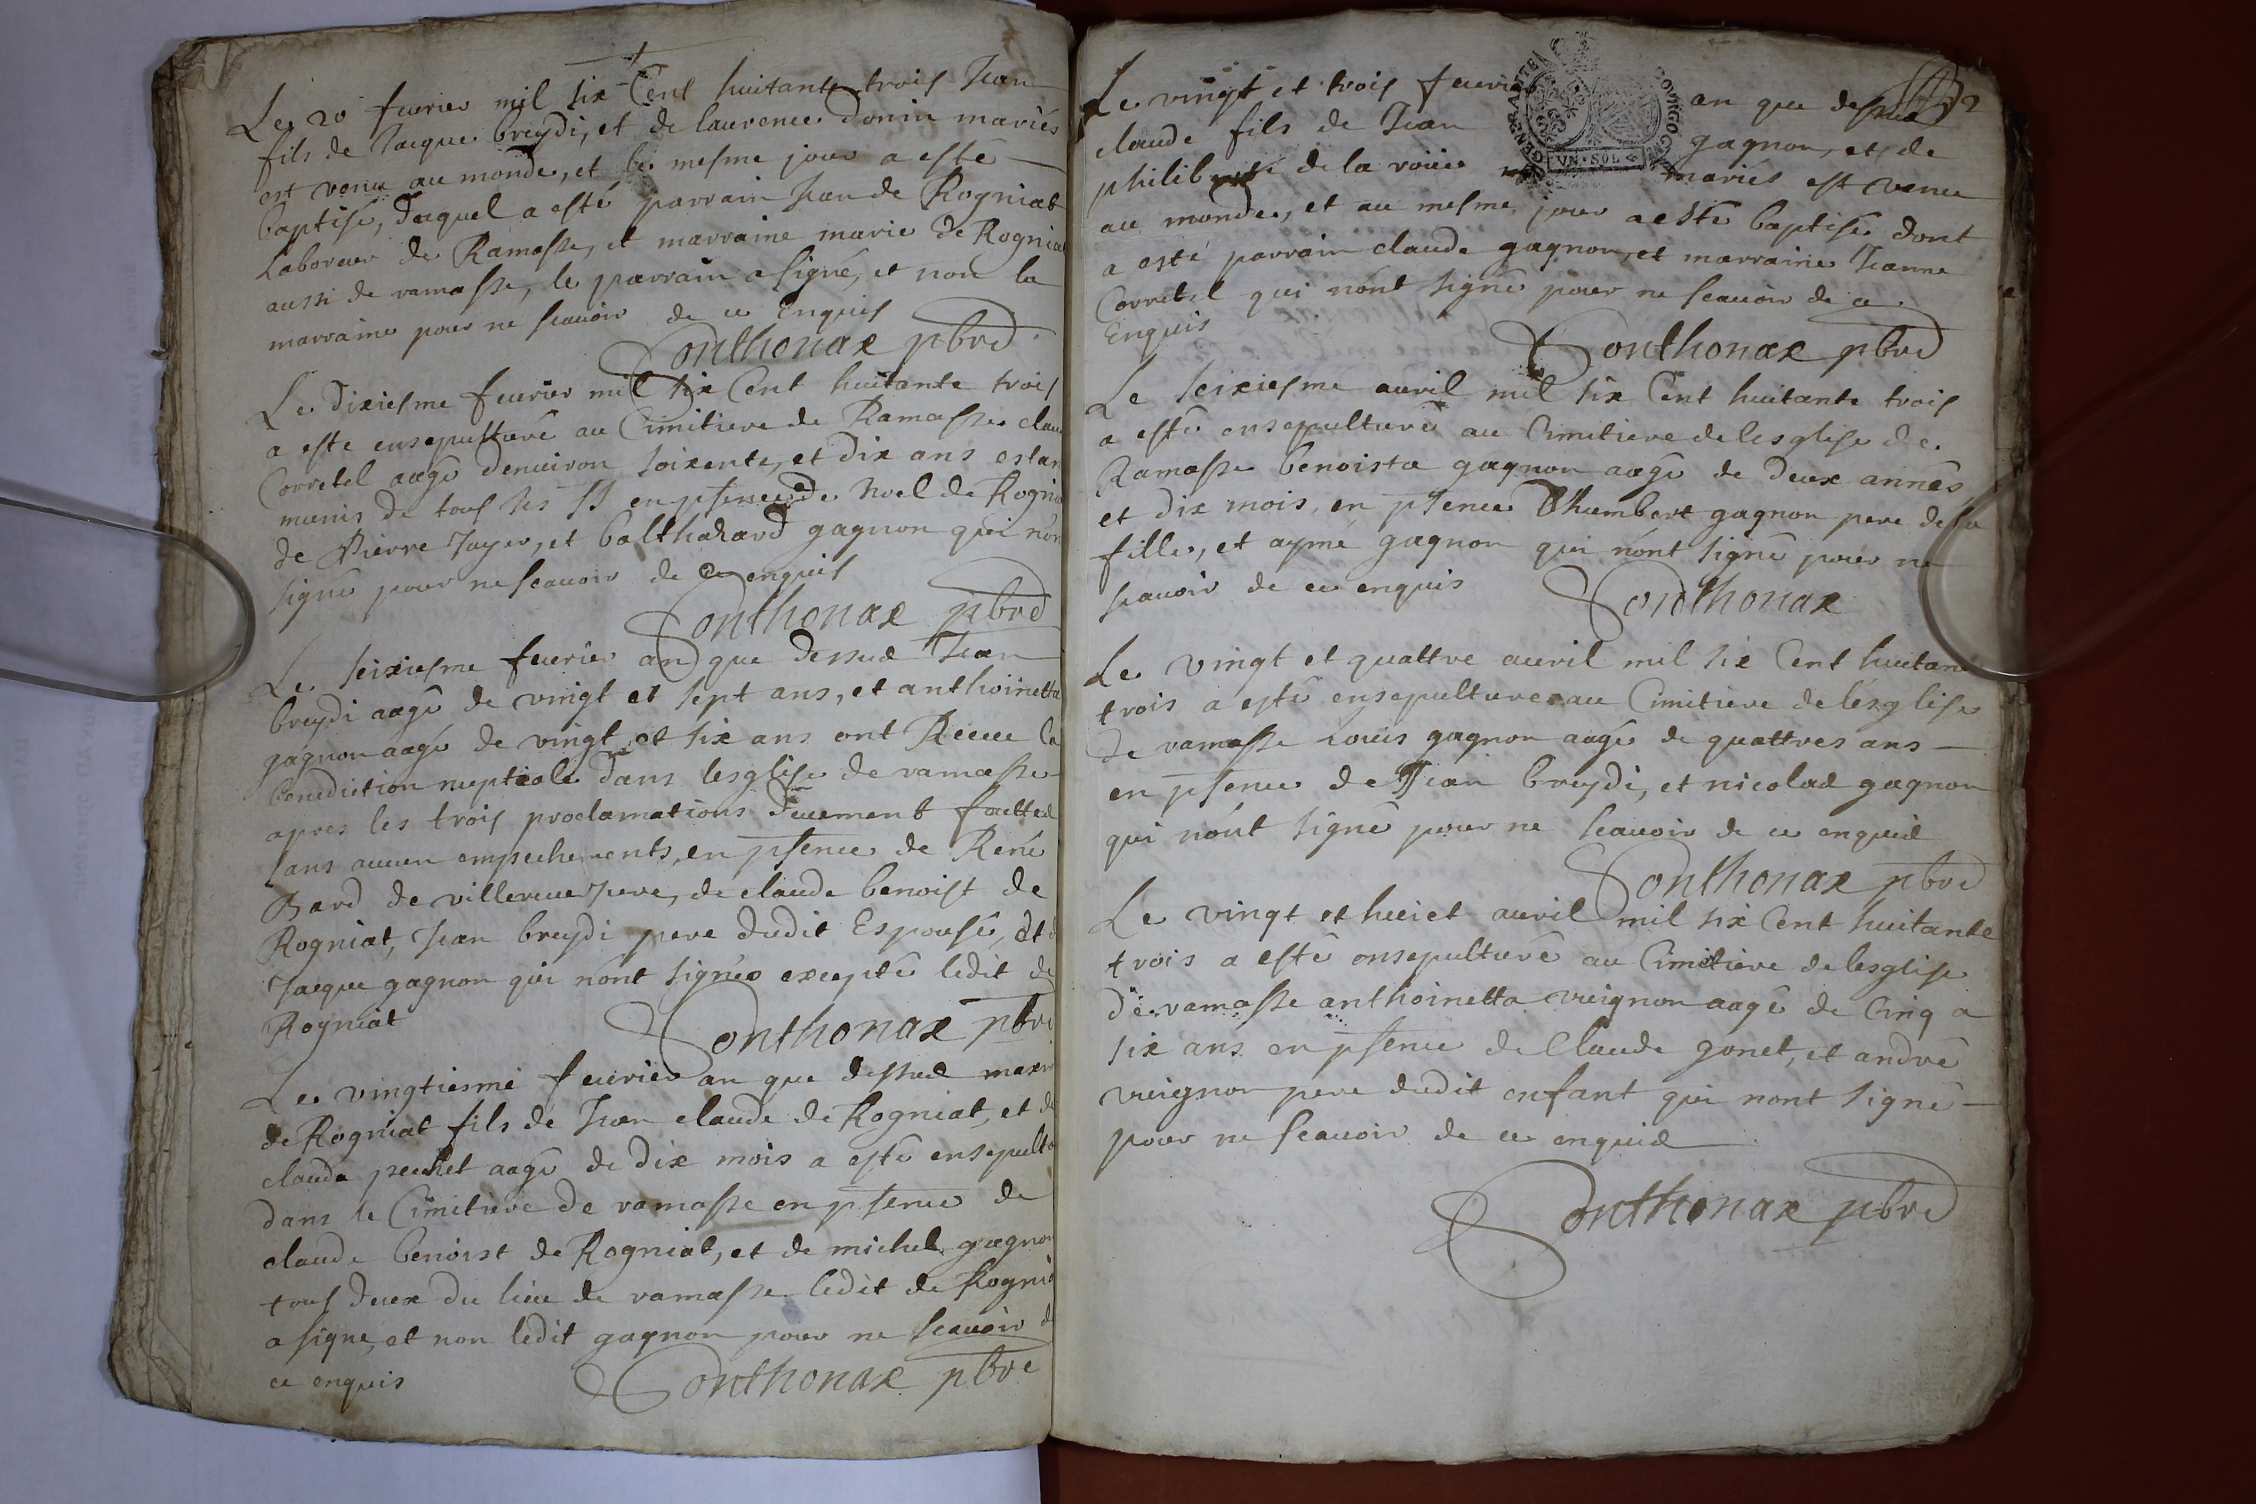 Le 20 feurier mil six Cent huitante trois Jean
fils de Jacque breydi, et de laurence donin mariés
est venu au monde, et le mesme jour a esté
baptisé, duquel a esté parrain Jean de Rogniat
Laboreur de Ramasse, et marraine marie de Rogniat
aussi de ramasse, le parrain a signé, et non la
marraine pour ne scauoir de ce Enquis
Sonthonax pbre
Le dixiesme feurier mil six Cent huitante trois
a este ensepulturé au Cimitiere de Ramasse claude
Corretel aagé denuiron soixente, et dix ans estan
munis de tous ses SS en psence de Noel de Rognia
de Pierre Juyer, et balthazard gagnon qui nōn
signé pour ne scauoir de ce enquis
Sonthonax pbre
Le seixiesme feurier an que dessus Jean
breydi aagé de vingt et sept ans, et anthoinetta
gagnon aagé de vingt et six ans ont Receu la
benediction nuptiale dans lesglise de ramasse
apres les trois proclamations deuement faittes
sans aucun empechements, en psence de René
Bard de villereuersure, de claude benoist de
Rogniat, Jean breydi pere dudit Espousé, et d
Jacque gagnon qui nont signés excepté ledit de
Rogniat
Sonthonax pbre
Le vingtiesme feurier an que dessus marri
de Rogniat fils de Jean claude de Rogniat, et de
clauda pechet aagé de dix mois a esté ensepultu
dans le Cimitiere de ramasse en psence de
claude benoist de Rogniat, et de michel gagnon
tous deux du lieu de ramasse ledit de Rognia
a signe, et non ledit gagnon pour ne scauoir d
ce enquis
Sonthonax pbre
Le vingt et trois feurier an que dessus
claude fils de Jean gagnon, et de
philiberte de la roüee mariés est venu
au monde, et au mesme jour a esté baptisé dont
a esté parrain claude gagnon, et marraine Jeanne
Corretel qui nont signé pour ne scauoir de ce
Enquis
Sonthonax pbre
GENERALITE
UN·SOL
Le seixiesme auril mil six Cent huitante trois
a esté ensepulturé au Cimitiere de lesglise de
Ramasse benoista gagnon aagé de deux années
et dix mois, en psence dhumbert gagnon pere de la
fille, et aymé gagnon qui nont signé pour ne
scauoir de ce enquis
Sonthonax
Le vingt et quattre auril mil six Cent huitante
trois a esté ensepulture au Cimitiere de lésglise
de ramasse Louis gagnon aagé de quattres ans
en psence de Jean breydi, et nicolas gagnon
qui nont signé pour ne scauoir de ce enquis
Sonthonax pbre
Le vingt et huict auril mil six Cent huitante
trois a esté ensepulturé au Cimitiere de lesglise
de ramasse anthoinetta vuignon aagé de Cinq a
six ans en psence de Claude gonet, et andré
vuignon pere dudit enfant qui nont signé
pour ne scauoir de ce enquis
Sonthonax pbre